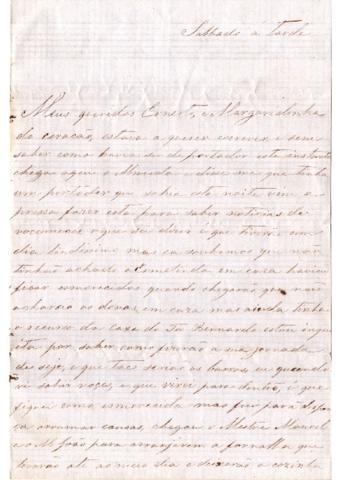 Sabbado a Tarde
Meus queridos Ernesto, e Margaridinha
do coração, estava a querer escrever, e sem
saber como havia de ser de portador este instante
chegou aqui o Almeida e disse me que tinha
um portador que sahia esta noite vim a
pressa fazer esta para saber noticias de
o que sei dizer é que tiverão um
dia lindissimo mas ca soubemos que não
tinhão achado a em casa havião
ficar esmorecidos quando chegarão que não
acharão os donos em casa mas ainda tinhão
o recurso da Casa do Tio Bernardo estou inquie
ta por saber como firarão a sua jornada
desejo, e que taes serião os burros, eu quando
vi sahir voces, e que virei para dentro, é que
fiquei como esmorecida mas fui para
arrumar causas, chegou o Mestre Manoel
e o M João para arranjarem a fornalha que
tiverão até ao meio dia e deixarão a cozinha